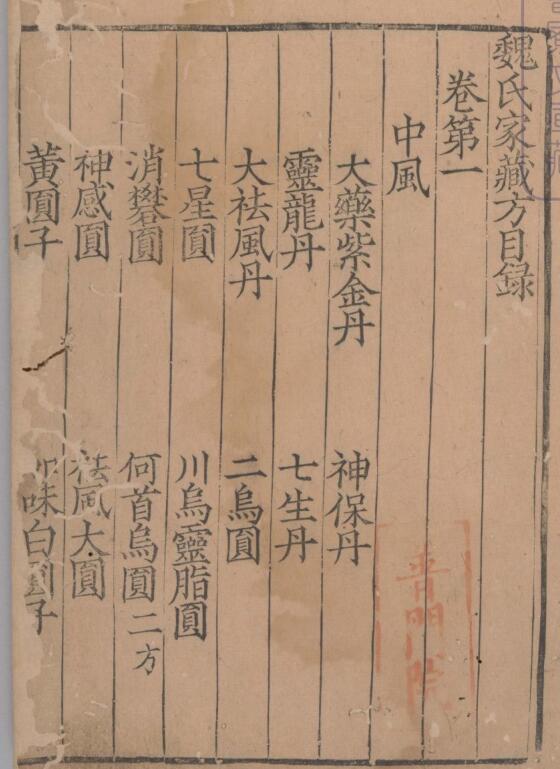 魏氏家藏方目録
卷第一
中風
大藥紫金丹 神保丹
靈龍丹 七生丹
大祛風丹 二烏圓
七星圓 川烏靈脂圓
消礬圓 何首烏圓二方
神感圓 祛風大圓
黃圓子 味白圓子
普門院